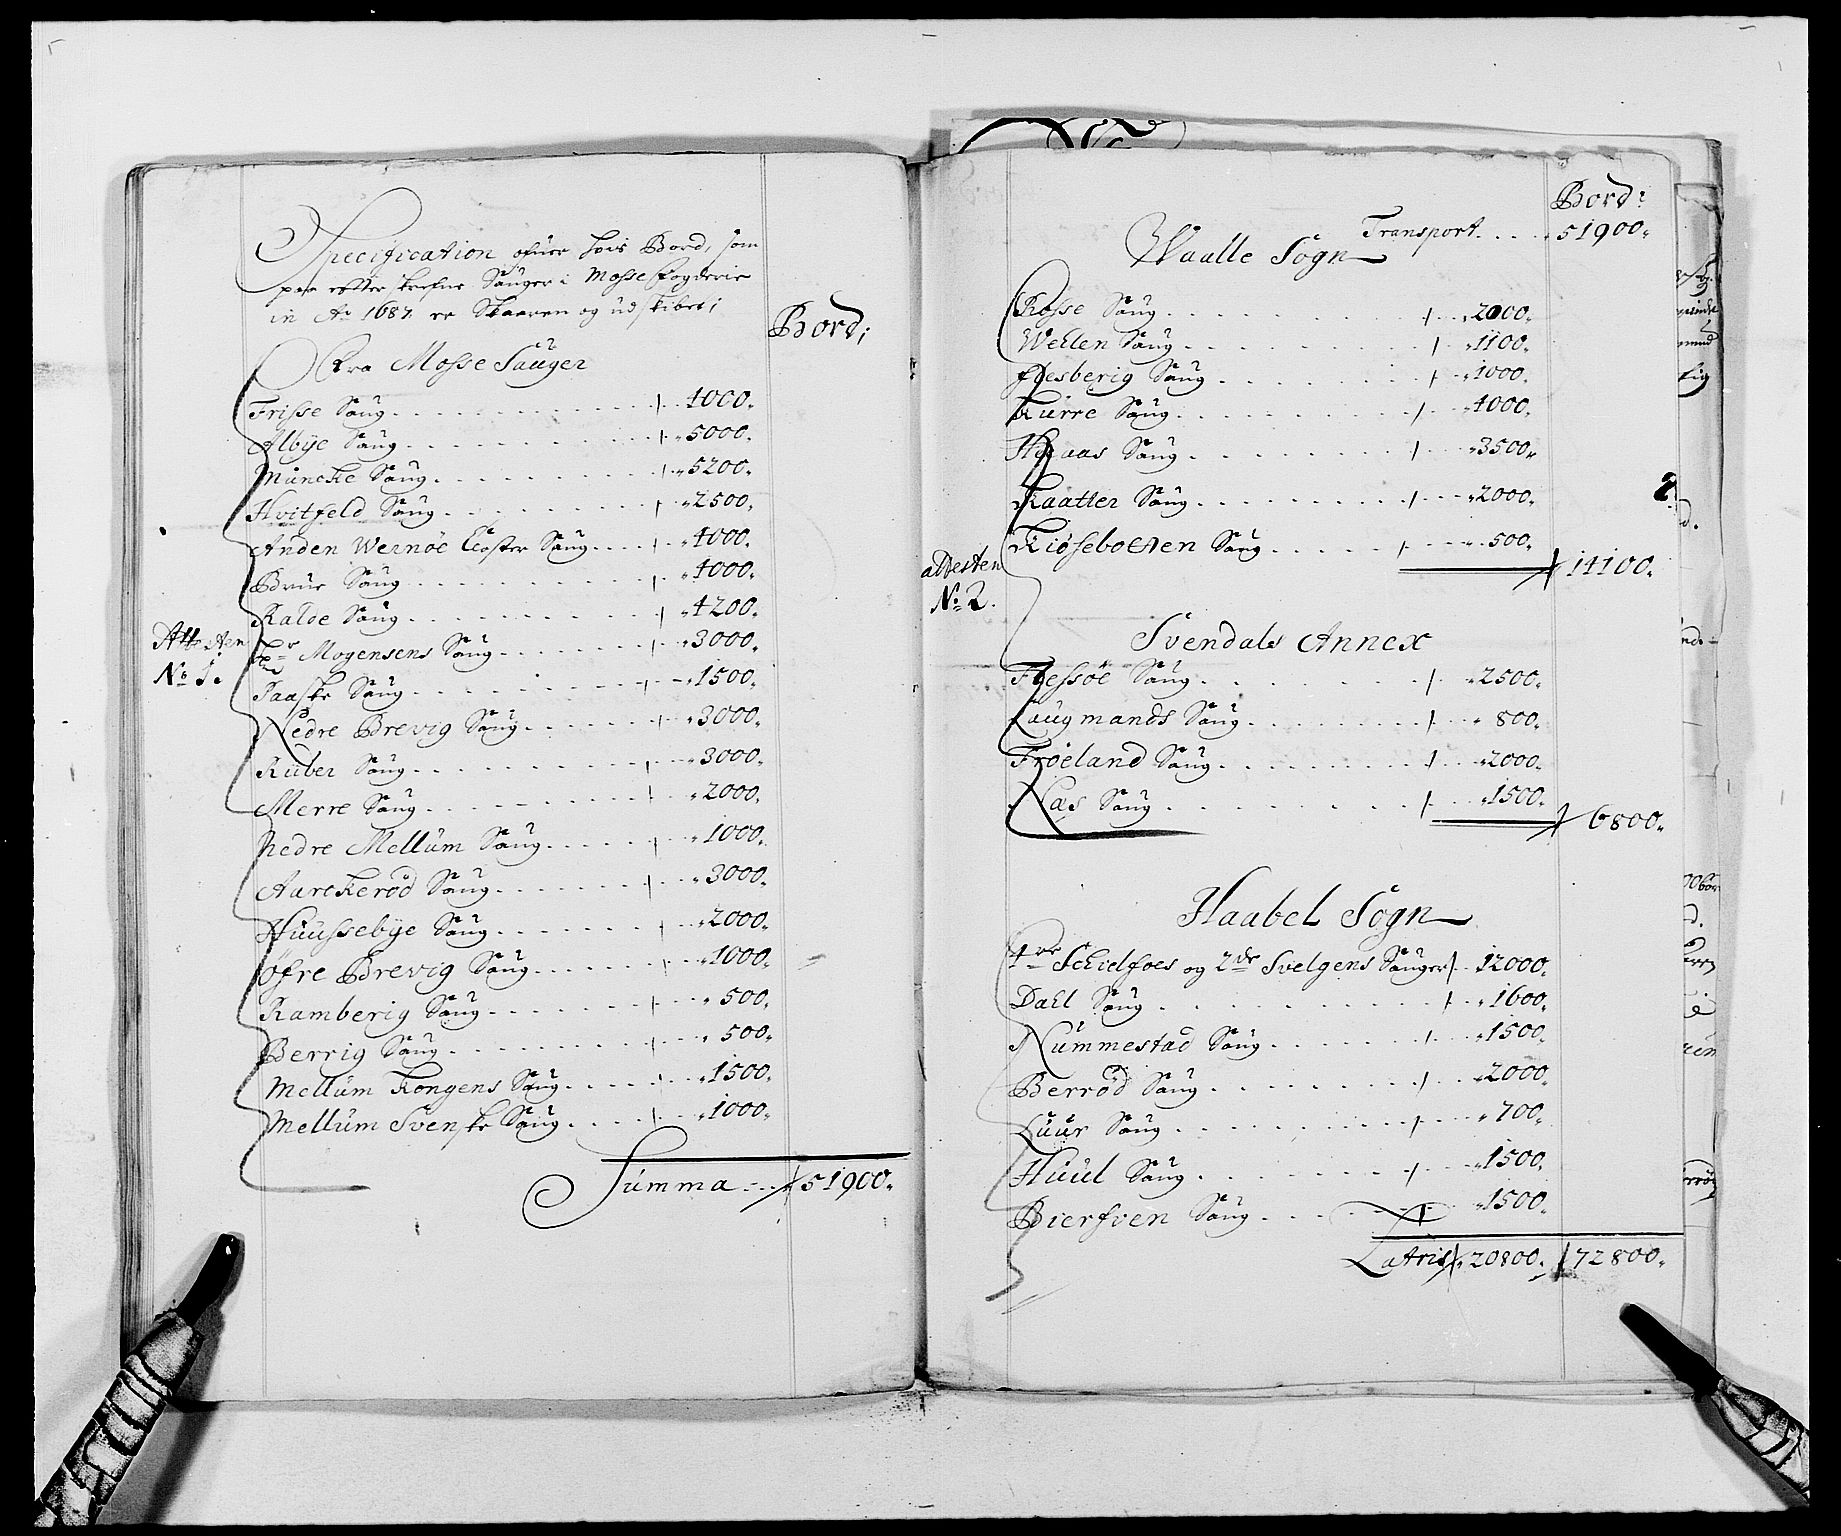 Specification ofuer hvis Bord, som
paa efterskrefne Sauger i Mosse fogderie
in Aº 1687. er Skaaren og udskibet;
Bord;
Fra Mosse Sauger
Frisse Saug . . . 4000.
Albÿe Saug . . . 5000.
Müncke Saug . . . 5200.
Hvitfeld Saug . . . 2500.
Anden Wernöe Closter Saug . . . 4000.
Brue Saug . . . 4000.
Kalde Saug . . . 4200.
Mogensens Saug . . . 3000.
Attesten
No 1.
Paaske Saug . . . 1500.
Nedre Brevig Saug . . . 3000.
Ruber Saug . . . 3000.
Merre Saug . . . 2000.
Nedre Mellüm Saug . . . 1000.
Aarckeröd Saug . . . 3000.
Huussebÿe Saug . . . 2000.
Øfre Brevig Saug . . . 1000.
Ramberig Saug . . . 500.
Berrig Saug . . . 500.
Mellüm Kongens Saug . . . 1500.
Mellüm Svenske Saug . . . 1000.
Summa . . . 51900.
Bord:
Transport . . . 51900.
Waalle Sogn
Rosse Saug . . . 2000.
Wellen Saug . . . 1100.
Flesberig Saug . . . 1000.
Kürre Saug . . . 4000.
Saug . . . 3500.
Kaatter Saug . . . 2000.
Kiøsebotten Saug . . . 500.
14100.
attesten
No 2.
Svendals Annex
Flessöe Saug . . . 2500.
Laugmands Saug . . . 800.
Fröeland Saug . . . 2000.
Næs Saug . . . 1500.
6800.
Haabel Sogn
4re Schielfoes og 2de Svelgens Sauger . . . 12000.
Dael Saug . . . 1600.
Nümmestad Saug . . . 1500.
Berröd Saug . . . 2000.
Luur Saug . . . 700.
Huul Saug . . . 1500.
Bierfven Saug . . . 1500.
Latris 20800. 72800.